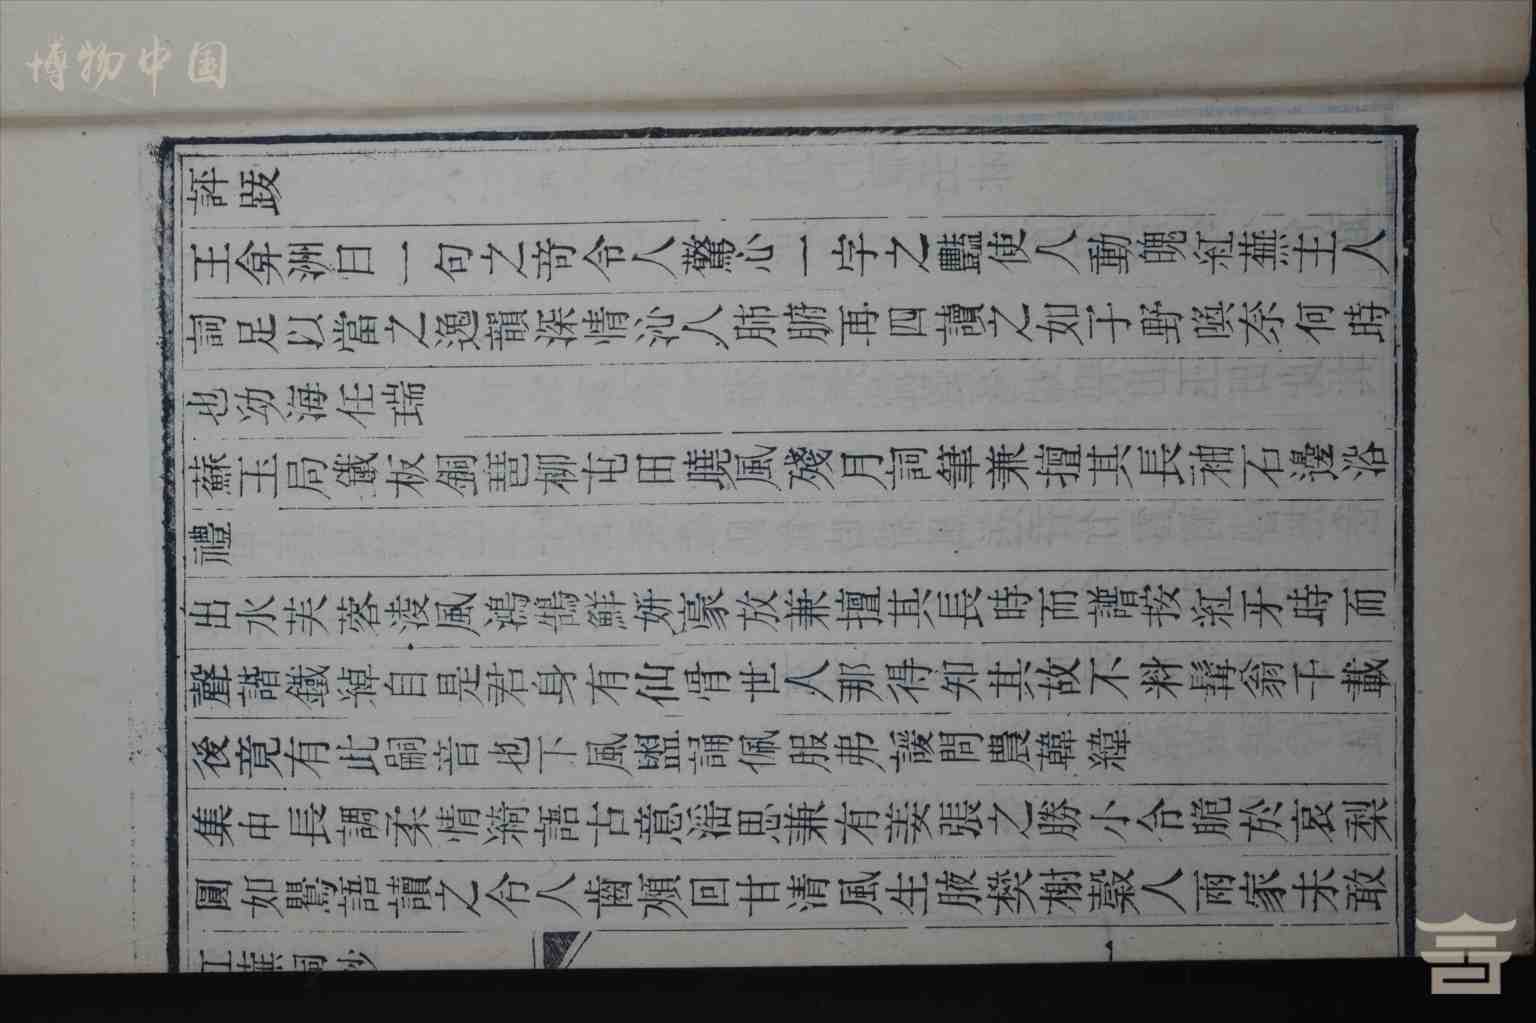 博物中国
評跋
王弇洲曰一句之奇令人驚心一字之豔使人動魄紅蕪主人
詞足以當之逸韻深情沁人肺腑再四讀之如子野喚奈何時
也幼海任端
蘇玉局鐵板銅琶柳屯田曉風殘月詞筆兼擅其長袖石邊浴
禮
出水芙蓉淩風鴻鵠鮮妍豪放兼擅其長時而譜按紅牙時而
聲諧鐵綽自是君身有仙骨世人那得知其故不料髯翁千載
後竟有此嗣音也下風盥誦佩服弗諼問農韓緯
集中長調柔情綺語古意湛思兼有姜張之勝小令脆於哀梨
圓如鶯語讀之令人齒頰回甘清風生腋樊榭穀人兩家未敢
紅蕪詞鈔
一